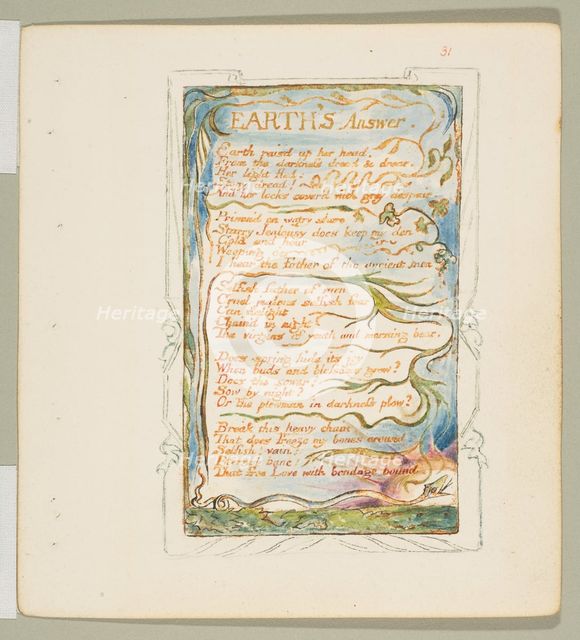 31
EARTH'S Answer.
Earth rais'd up her head,
From the darkness dread & drear.
Her light fled:
Stony dread!
And her locks cover'd with grey despair.
Prison'd on watry shore
Starry Jealousy does keep my den
Cold and hoar
Weeping o'er
I hear the Father of the ancient men
Selfish father of men
Cruel jealous selfish fear
Can delight
Chain'd in night
The virgins of youth and morning bear.
Does spring hide its joy
When buds and blossoms grow?
Does the sower?
Sow by night?
Or the plowman in darkness plow?
Break this heavy chain
That does freeze my bones around
Selfish! vain!
Eternal bane!
That free Love with bondage bound
Heritage Images